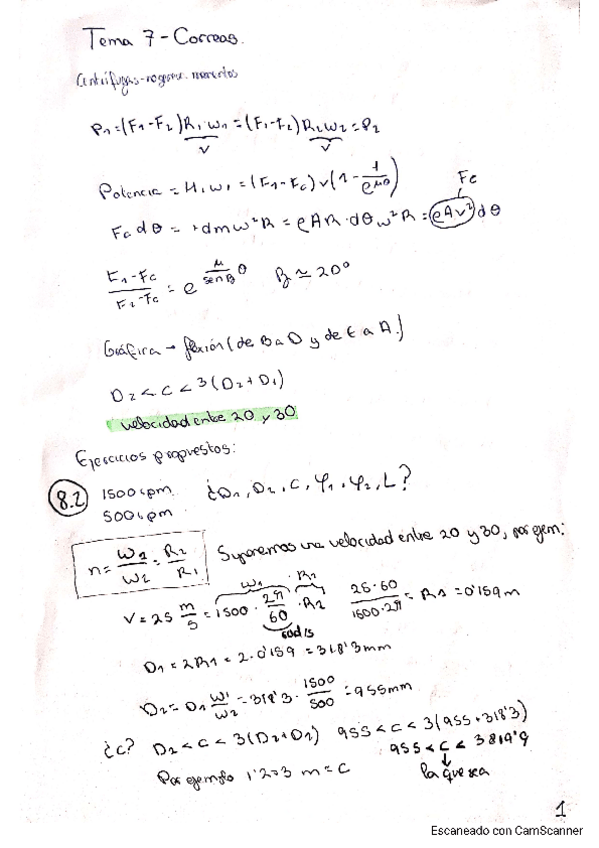 Tema 7 - Correas.
Centrífugas - momentos
P1 = (F1 - F2) R1 · w1 = (F1 - F2) R2 w2 = P2
v v
Potencia = M1 w1 = (F1 - Fc) v (1 - 1/e^μθ)
Fc
Fc dθ = dm w² R = ρ A R · dθ w² R = ρAv² dθ
(F1 - Fc)/(F2 - Fc) = e^(μ/senβ θ) β ≃ 20°
Gráfica → flexión (de B a D y de E a A.)
D2 < C < 3 (D2 + D1)
velocidad entre 20 y 30
Ejercicios propuestos:
8.2 1500 rpm. ¿D1, D2, C, φ1, φ2, L?
500 rpm
n = w1/w2 = R2/R1 Suponemos una velocidad entre 20 y 30, por ejem:
w1 · R1
V = 25 m/s = 1500 · 2π/60 · R1 25·60/1500·2π = R1 = 0'159 m
rad/s
D1 = 2R1 = 2 · 0'159 = 318'3 mm
D2 = D1 w1/w2 = 318'3 · 1500/500 = 955 mm
¿c? D2 < C < 3 (D2 + D1) 955 < C < 3 (955 + 318'3)
955 < C < 3819'9
Por ejemplo 1'203 m = C la que sea
1
Escaneado con CamScanner